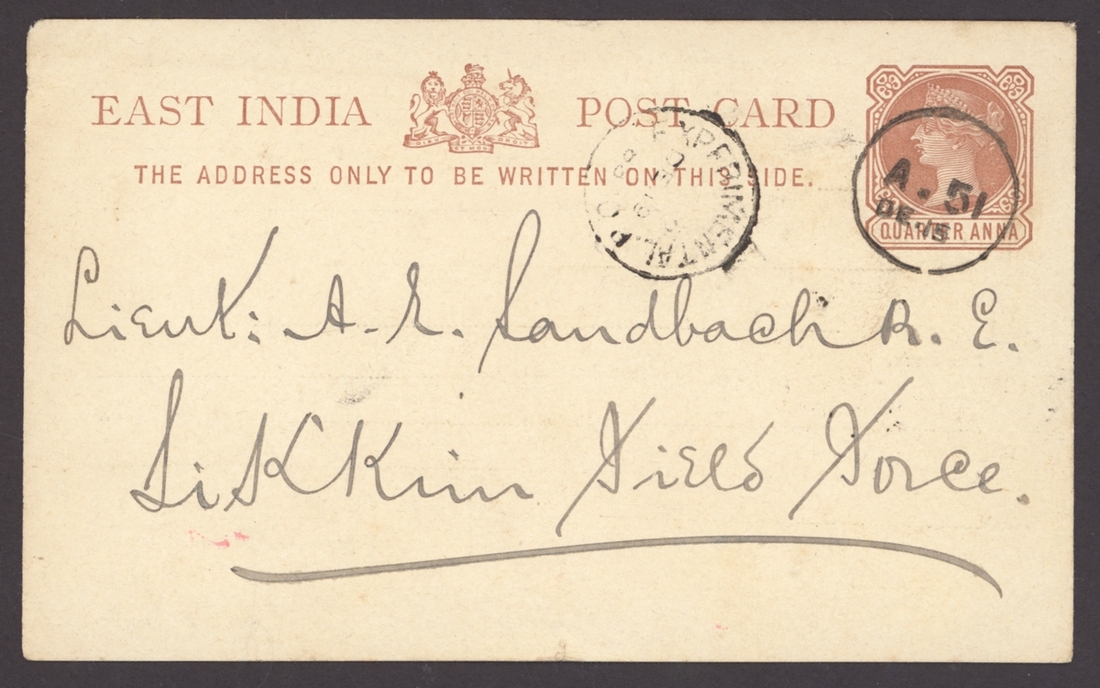 EAST INDIA POST CARD
THE ADDRESS ONLY TO BE WRITTEN ON THIS SIDE.
QUARTER ANNA
EXPERIMENTAL P.O.
A . 51
DE . 15
Lieut: A. E. Sandbach R. E.
Sikkim Field Force.